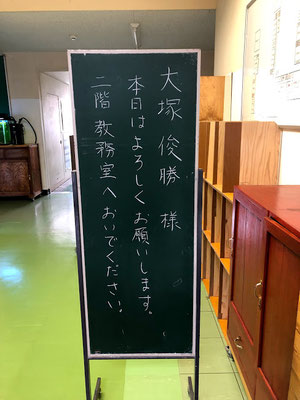 大塚 俊勝 様
本日はよろしくお願いします。
二階 教務室へ おいでください。